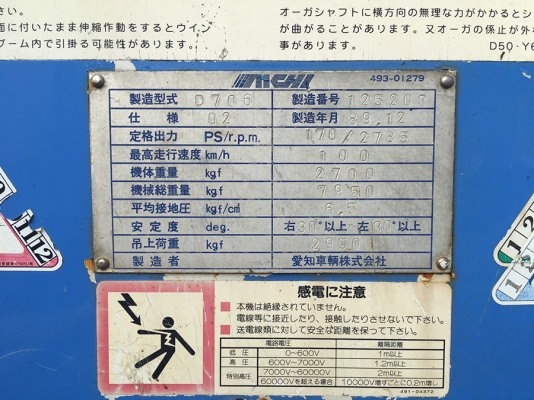 さい。
面に付いたまま伸縮作動をするとウイン
ブーム内で引掛る可能性があります。
オーガシャフトに横方向の無理な力がかかるとシ
が曲がることがあります。又オーガの係止が外
事があります。 D50-Y6
AICHI 493-01279
製造型式 D706 製造番号
仕様 Q2 製造年月 89.12
定格出力 PS/r.p.m. 170/2785
最高走行速度 km/h 100
機体重量 kgf 2700
機械総重量 kgf 7950
平均接地圧 kgf/cm² 6.5
安定度 deg. 右30°以上 左30°以上
吊上荷重 kgf 2950
製造者 愛知車輌株式会社
感電に注意
本機は絶縁されていません。
電線等に接近したり、接触したりさせないで下さい。
送電線類に対して安全な距離を保って下さい。
電路電圧 離隔距離
低圧 0〜600V 1m以上
高圧 600V〜7000V 1.2m以上
特別高圧 7000V〜60000V 2m以上
60000Vを超える場合 10000V増すごとに0.2m増し
491-04372
11 12
1 2
1